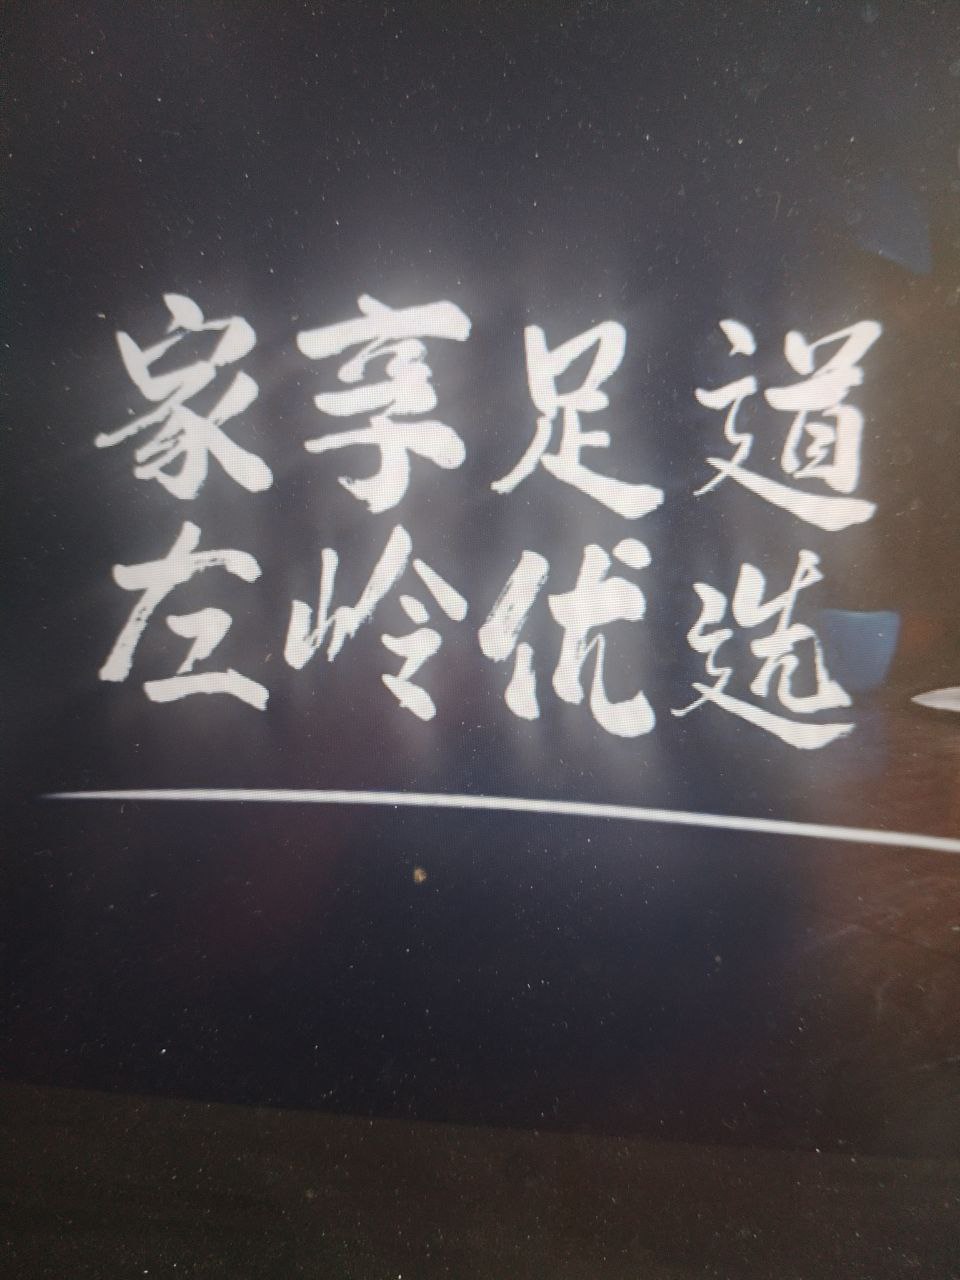 家享足道
左岭优选